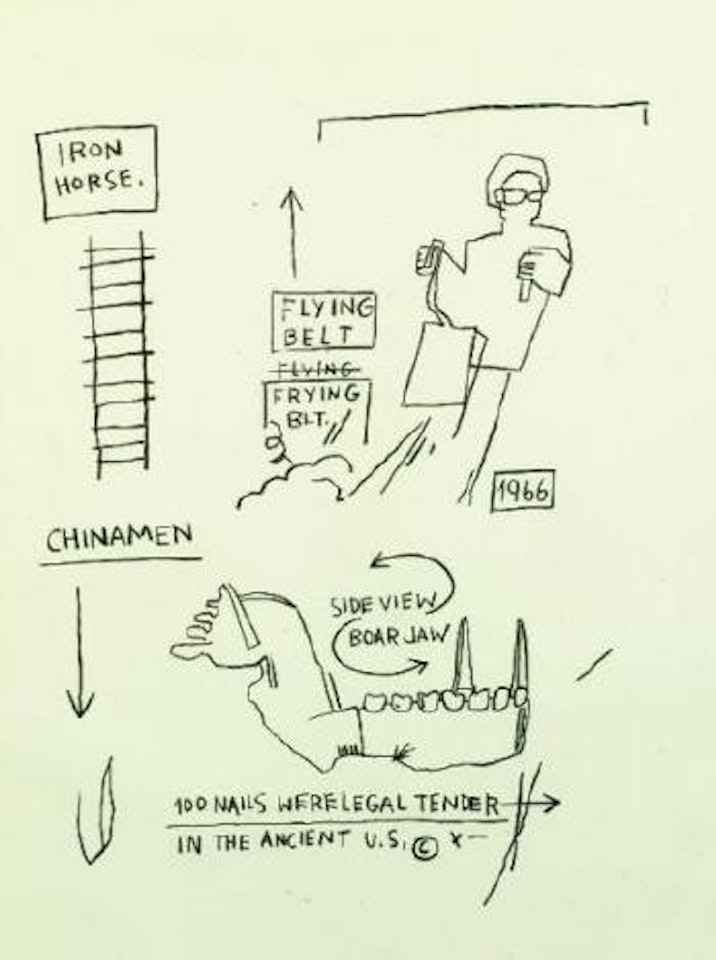 IRON
HORSE.
FLYING
BELT
FLYING
FRYING
BLT.
1966
CHINAMEN
SIDE VIEW
BOAR JAW
100 NAILS WERE LEGAL TENDER
IN THE ANCIENT U.S. © X—